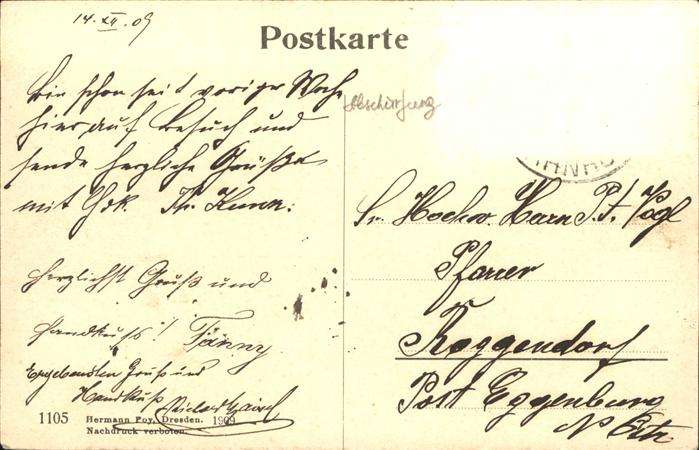 14. XII. 09
Postkarte
Bin schon seit voriger Woche
hier auf Besuch und
sende herzliche Grüße
mit Hdk. Th. Kunn.
Herzlichst Gruß und
Handkuss! Fanny
Ergebensten Gruß und
Handkuß
1105 Hermann Poy, Dresden. 1909
Nachdruck verboten.
Sr. Hochw. Herrn P. T. Vogl
Pfarrer
Roggendorf
Post Eggenburg
N Östr